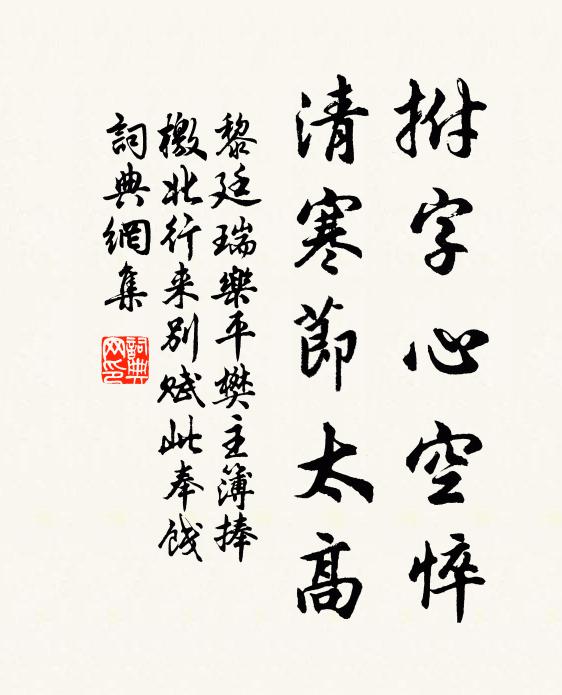 拊字心空悴
清寒節太高
黎廷瑞樂平樊主簿捧
檄北行来別賦此奉餞
詞典網集
詞典網印